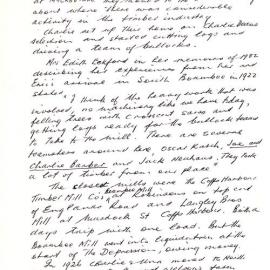 about where there was considerable
activity in the timber industry
Charles set up their home on Charlie
selection and started cutting logs and
driving a team of bullocks.
Mrs Edith Eckford in her memoirs of 1982
describing her experiences from her and
Eric's arrival in South Boambee in 1922
states,
I think of the heavy work that was
involved, no machinery like we have today,
felling trees with crosscut saws and
getting logs ready for the bullock teams
to take to the mill. There are several
teamsters around here, Oscar Joe and
Charlie Barker and Jack Neuhaus, They took
a lot of timber from our place
The closest mills were the Coffs Harbour
Timber Mill Co's on top end
of Englands Road and Langley Bros
Mill at Murdock St Coffs Harbour. Both a
days trip with one load. But the
Boambee Mill went into liquidation at the
start of the Depression, owing money.
In 1926 Charlie &amp; moved to North